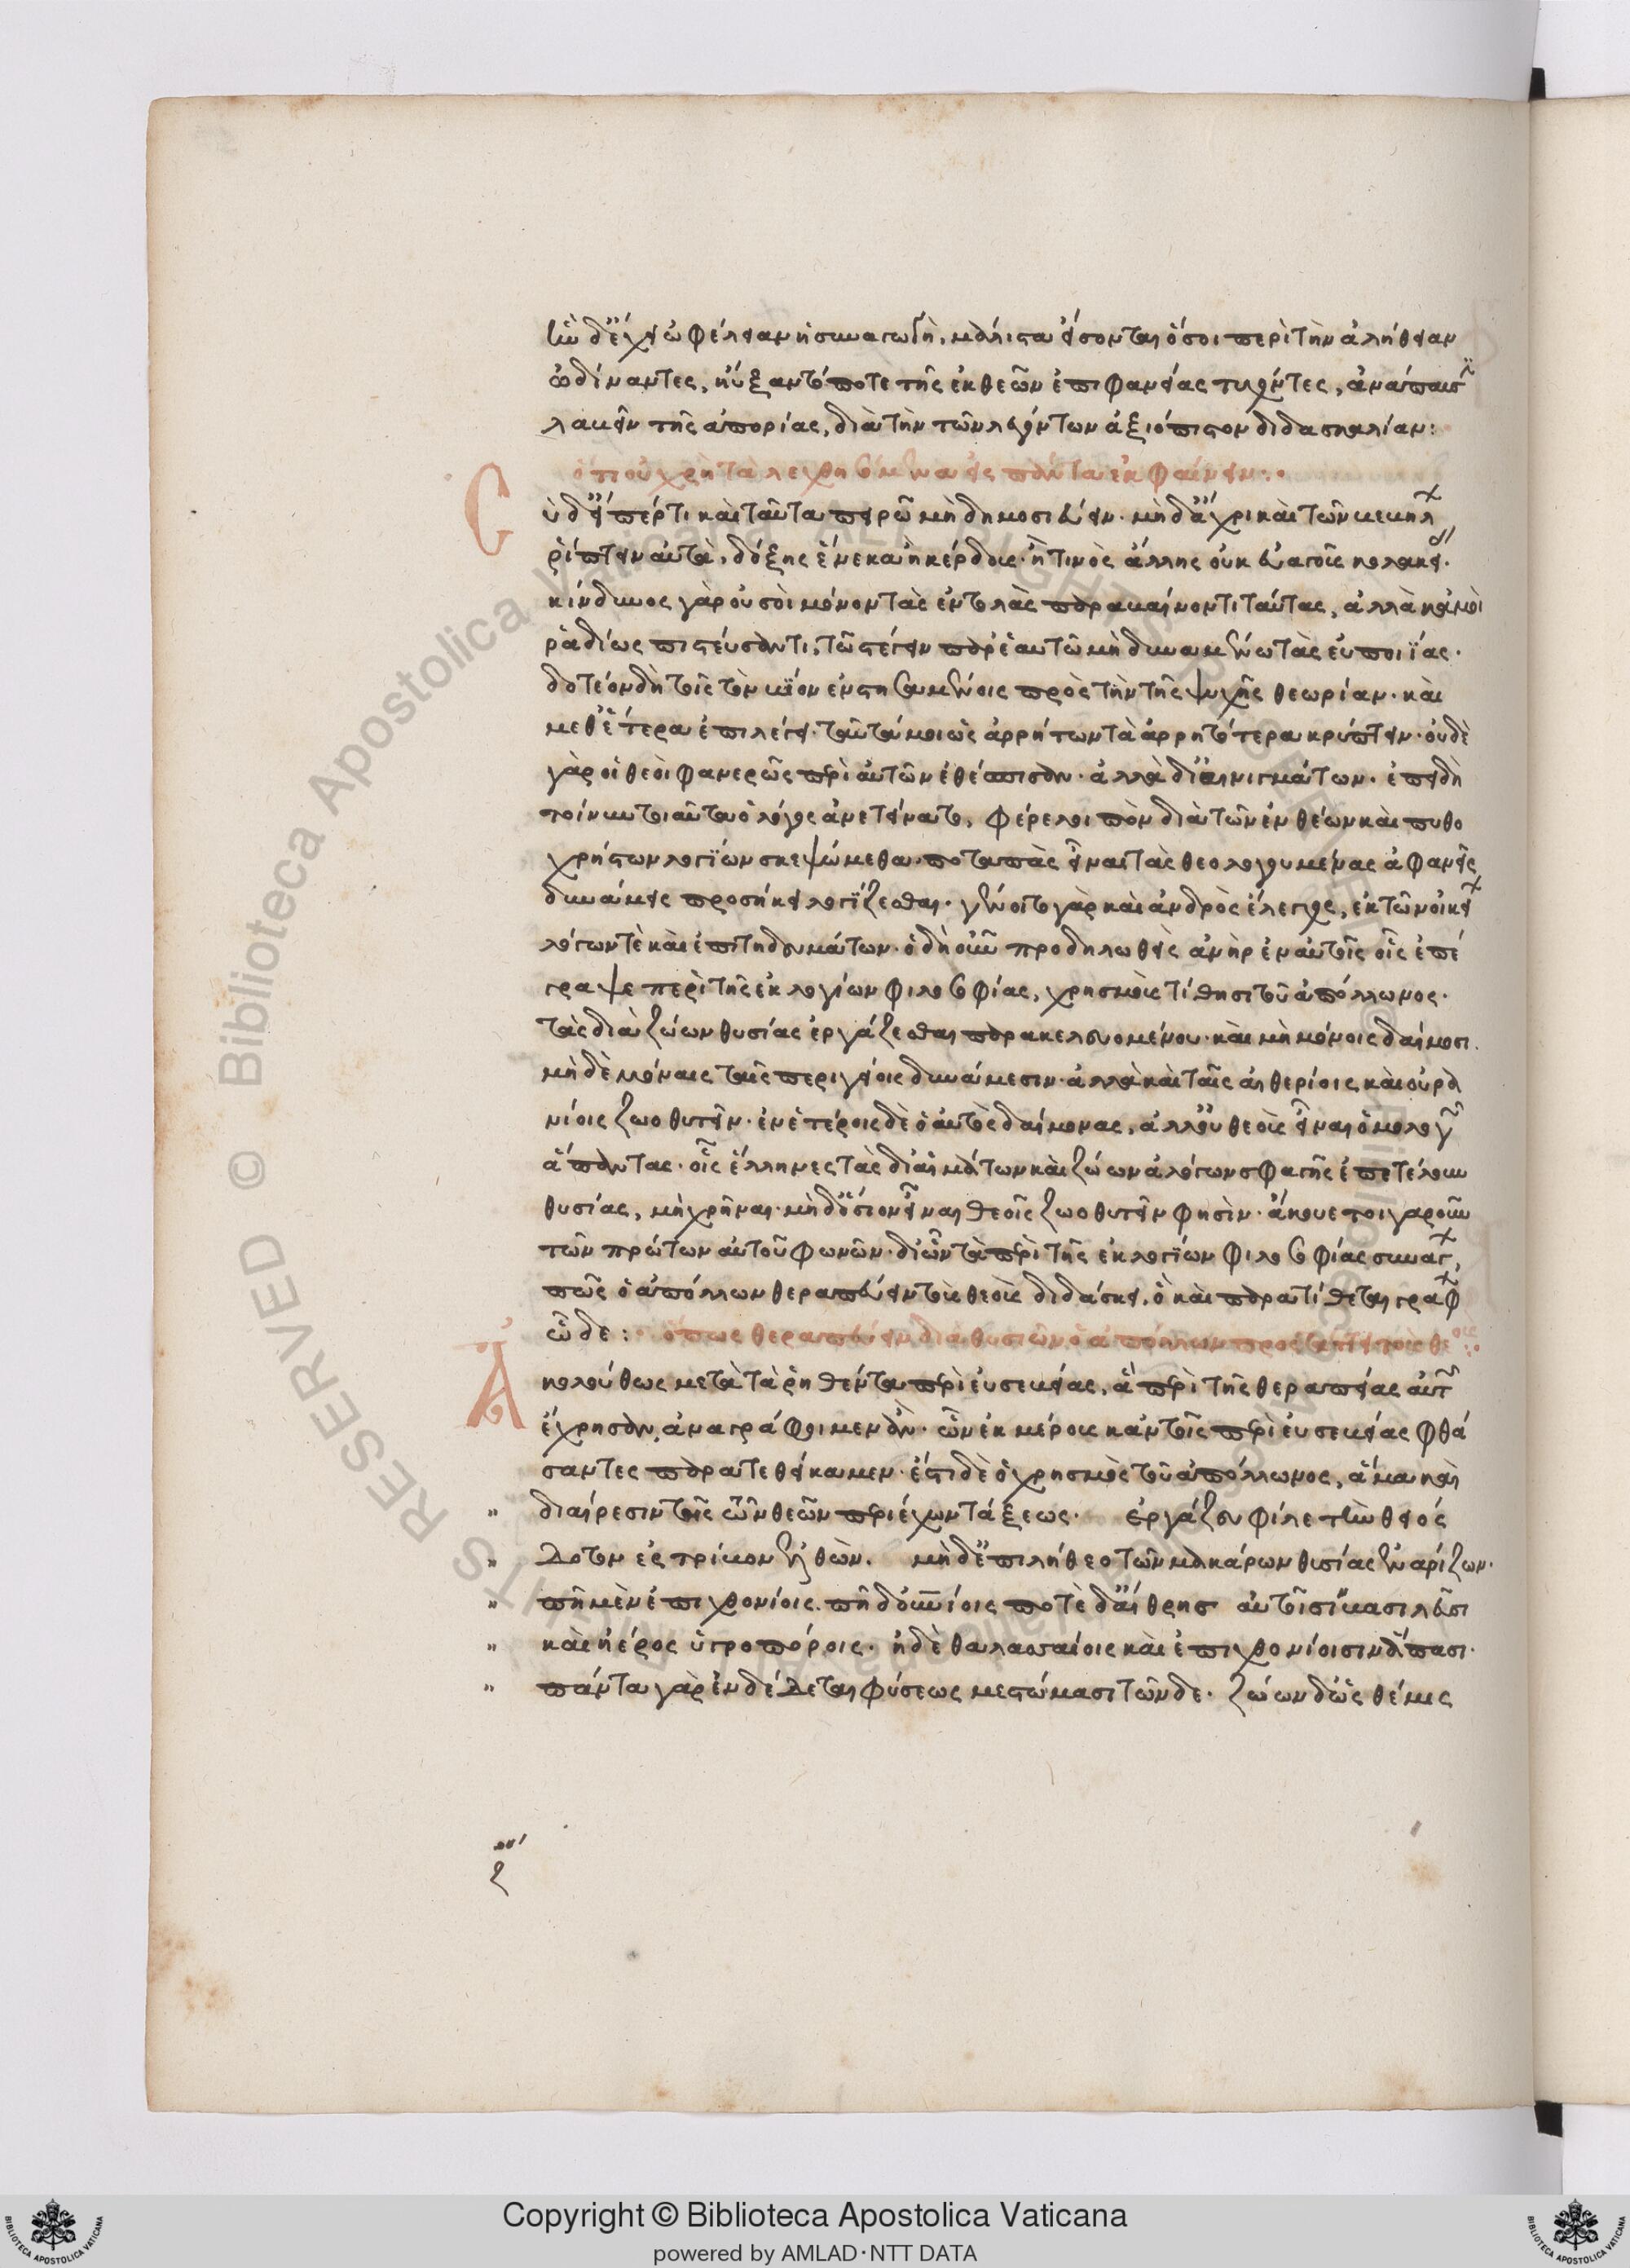 ἣν δ' ἔχει ὠφέλειαν ἡ συναγωγὴ, μάλιστα εἴσονται ὅσοι περὶ τὴν ἀλήθειαν
ὠδίναντες, ηὔξαντό ποτε τῆς ἐκ θεῶν ἐπιφανείας τυχόντες, ἀνάπαυσ
λαβεῖν τῆς ἀπορίας, διὰ τὴν τῶν λεγόντων ἀξιόπιστον διδασκαλίαν:
ὅτι οὐ χρὴ τὰ λεχθησόμενα εἰς πάντα ἐκφαίνειν:
Σὺ δ' εἴπέρ τι καὶ ταῦτα πειρῶ μὴ δημοσιεύειν. μὴ δ' ἄχρι καὶ τῶν βεβήλ
ῥίπτειν αὐτὰ, δόξης ἕνεκα ἢ κέρδους. ἤ τινος ἄλλης οὐκ εὐαγοῦς κολακεί.
κίνδυνος γὰρ οὐ σοὶ μόνον τὰς ἐντολὰς παραβαίνοντι ταύτας, ἀλλὰ κἀμοὶ
ῥαδίως πιστεύσαντι, τῷ στέγειν παρ' ἑαυτῷ μὴ δυναμένω τὰς εὐποιΐας.
δοτέον δὴ τοῖς τὸν βίον ἐνστησαμένοις πρὸς τὴν τῆς ψυχῆς θεωρίαν. καὶ
μεθ' ἕτερα ἐπιλέγει. ταῦτά μοι ὡς ἀρρήτων τὰ ἀρρητότερα κρύπτειν. οὐδὲ
γὰρ οἱ θεοὶ φανερῶς περὶ αὐτῶν ἐθέσπισαν. ἀλλὰ δι' αἰνιγμάτων. ἐπειδὴ
τοίνυν τοιαῦτα ὁ λόγος ἀνετείνατο, φέρε λοιπὸν διὰ τῶν ἐνθέων καὶ πυθο
χρήστων λογίων σκεψώμεθα. ποταπὰς εἶναι τὰς θεολογουμένας ἀφανεῖς
δυνάμεις προσήκει λογίζεσθαι. γένοιτο γὰρ καὶ ἀνδρὸς ἔλεγχος, ἐκ τῶν οἰκεί
λόγων τὲ καὶ ἐπιτηδευμάτων. ὁ δὴ οὖν προδηλωθεὶς ἀνὴρ ἐν αὐτοῖς οἷς ἐπέ
γραψε περὶ τῆς ἐκ λογίων φιλοσοφίας, χρησμοὺς τίθησι τοῦ ἀπόλλωνος.
τὰς διὰ ζώων θυσίας ἐργάζεσθαι παρακελευομένου. καὶ μὴ μόνοις δαίμοσι.
μὴ δὲ μόναις ταῖς περιγείοις δυνάμεσιν. ἀλλὰ καὶ ταῖς αἰθερίοις καὶ οὐρα
νίοις ζωοθυτεῖν. ἐν ἑτέροις δὲ ὁ αὐτὸς δαίμονας, ἀλλ' οὐ θεοὺς εἶναι ὁμολογ
ἅπαντας. οἷς ἕλληνες τὰς δι' αἱμάτων καὶ ζώων ἀλόγων σφαγῆς ἐπετέλουν
θυσίας, μὴ χρῆναι. μὴ δ' ὅσιον εἶναι θεοῖς ζωοθυτεῖν φησὶν. ἄκουε τοιγαροῦν
τῶν πρώτων αὐτοῦ φωνῶν. δι' ὧν τὰ περὶ τῆς ἐκ λογίων φιλοσοφίας συνάγ,
πῶς ὁ ἀπόλλων θεραπεύειν τοὺς θεοὺς διδάσκει. ὃ καὶ παρατίθεται γράφ
ὧδε: ὅπως θεραπεύειν διὰ θυσιῶν ὁ ἀπόλλων προστάττει τοὺς θεούς:
Ἀκολούθως μετὰ τὰ ῥηθέντα περὶ εὐσεβείας, ἃ περὶ τῆς θεραπείας αὐτ
ἔχρησαν, ἀναγράφοιμεν ἄν. ὧν ἐκ μέρους κἀν τοῖς περὶ εὐσεβείας φθά
σαντες παρατεθείκαμεν. ἔστι δὲ ὁ χρησμὸς τοῦ ἀπόλλωνος, ἅμα καὶ
διαίρεσιν τοῖς τῶν θεῶν περιέχων τάξεως. ἐργάζευ φίλε τὴν θεόσ
δοτον ἐς τρίβον ἐλθών. μὴ δ' ἐπιλήθεο τῶν μακάρων θυσίας ἐναρίζων.
πῆ μὲν ἐπιχθονίοις. πῆ δ' οὐνίοις ποτὲ δ' αἴθρης αὐτοῖσι βασιλεῦσι
καὶ ἠέρος ὑγροπόροις. ἠδὲ θαλασσαίοις καὶ ἐπιχθονίοισιν ἅπασι.
πάντα γὰρ ἐνδέδεται φύσεως μεστώμασι τῶνδε. ζώων δ' ὡς θέμις